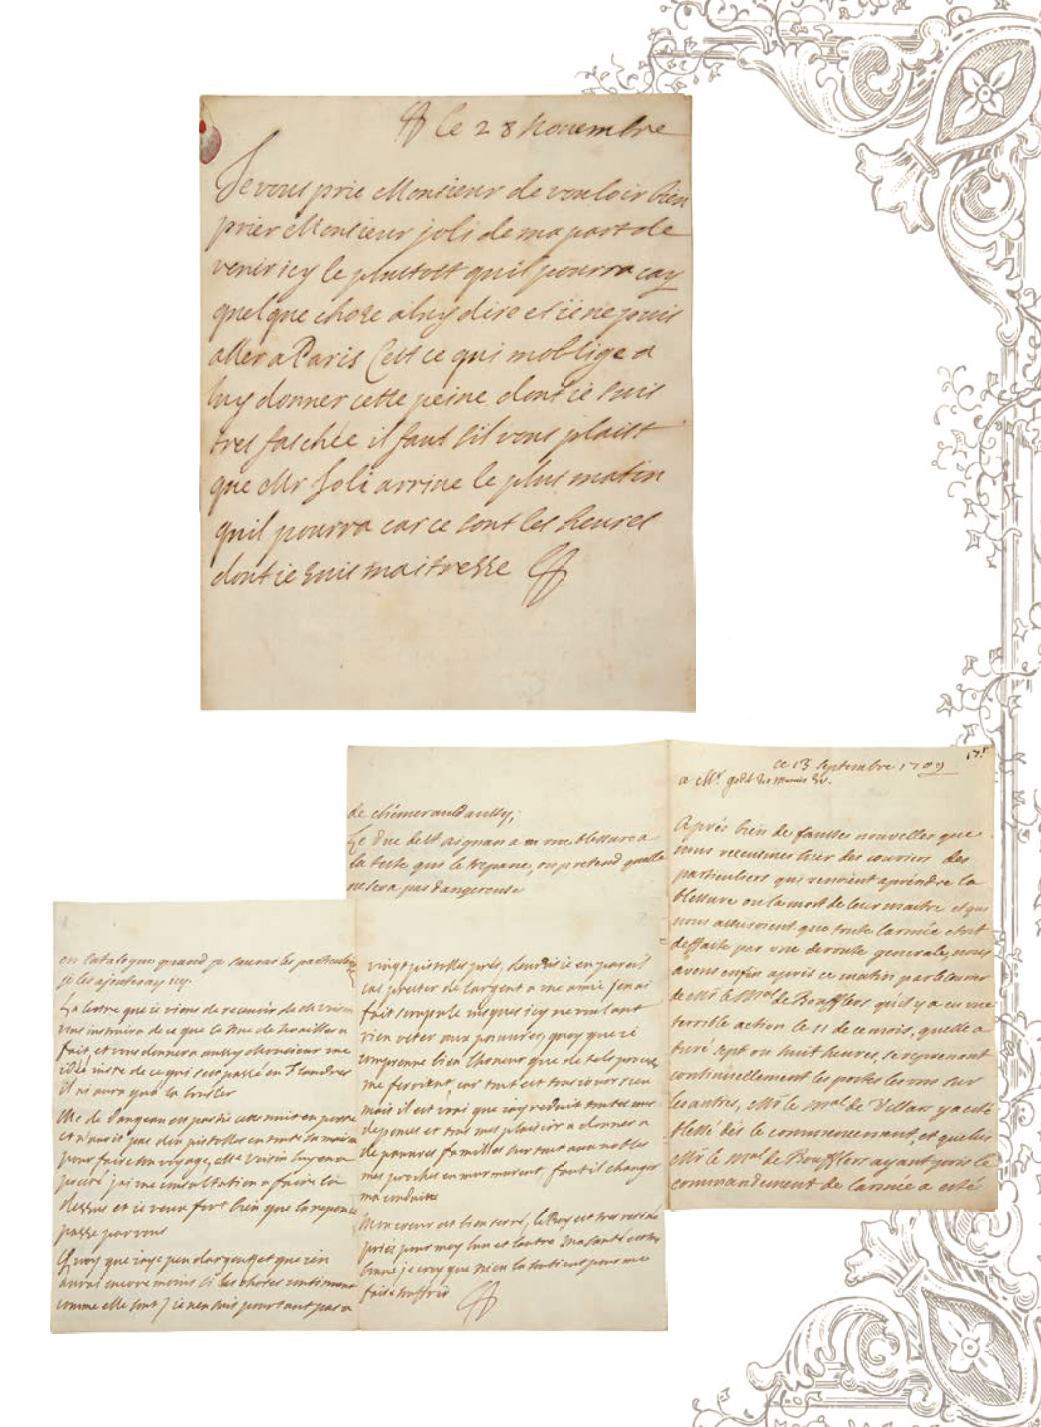 le 28 Novembre
Je vous prie Monsieur de vouloir bien
prier Monsieur joli de ma part de
venir icy le plustost quil pourra iay
quelque chose a luy dire et ie ne puis
aller a Paris Cest ce qui moblige a
luy donner cette peine dont ie suis
tres faschée il faut sil vous plaist
que Mr Joli arrive le plus matin
quil pourra car ce sont les heures
dont ie suis maitresse
de chémerault aussy,
Le Duc de St aignan a une blessure a
la teste que le trepane, on pretend quelle
ne sera pas dangereuse
17.
ce 13 septembre 1709
a Mr
Après bien de fausses nouvelles que
nous receumes hier des couriers des
particuliers qui venoient aprendre la
blessure ou la mort de leur maitre et qui
nous assuroient que toute larmée etoit
deffaite par une deroute generale, nous
avons enfin apris ce matin par le courier
de Mr le Mal de Boufflers quil y a eu une
terrible action le 11 de ce mois, quelle a
duré sept ou huit heures, se reprenant
continuellement les postes les uns sur
les autres, Mr le Mal de Villars y a esté
blessé dès le commencement, et que luy
Mr le Mal de Boufflers ayant pris le
commandement de larmée a esté
un catalogue quand je sauray les particularités
je les ajouteray icy.
La lettre que ie viens de recevoir de Mr Voisin
vous instruira de ce que le Duc de Noailles a
fait, et vous donnera aussy Monsieur une
idée juste de ce qui sest passé en Flandres
il ny aura qua la brusler
Me de Dangeau est partie cette nuit en poste
et nauoit pas dix pistoles en toute sa maison
pour faire son voyage, Me Voisin luy en a
dessus et ie veux fort bien que la reponse
passe par vous
Quoy que iaye peu dargent et que ien
auray encore moins si les choses continuent
comme elle sont, ie nen suis pourtant pas a
vingt pistolles près, devrois ie en pareil
cas prester de largent a une amie jen ai
fait scrupule iusques icy ne voulant
rien oster aux pauvres, quoy que ie
comprenne bien lhoneur que de tels procedés
me feroient, car tout est tous iours rien
mais il est vrai que iay reduit toutes mes
depenses et tous mes plaisirs a donner a
de pauvres familles sur tout aux nobles
mes proches en murmurent, faut il changer
ma conduite
Mon coeur est bien serré, le Roy est tres resolu
priés pour moy lun et lautre ma santé est tres
bonne je croy que Dieu la soutient pour me
faire souffrir